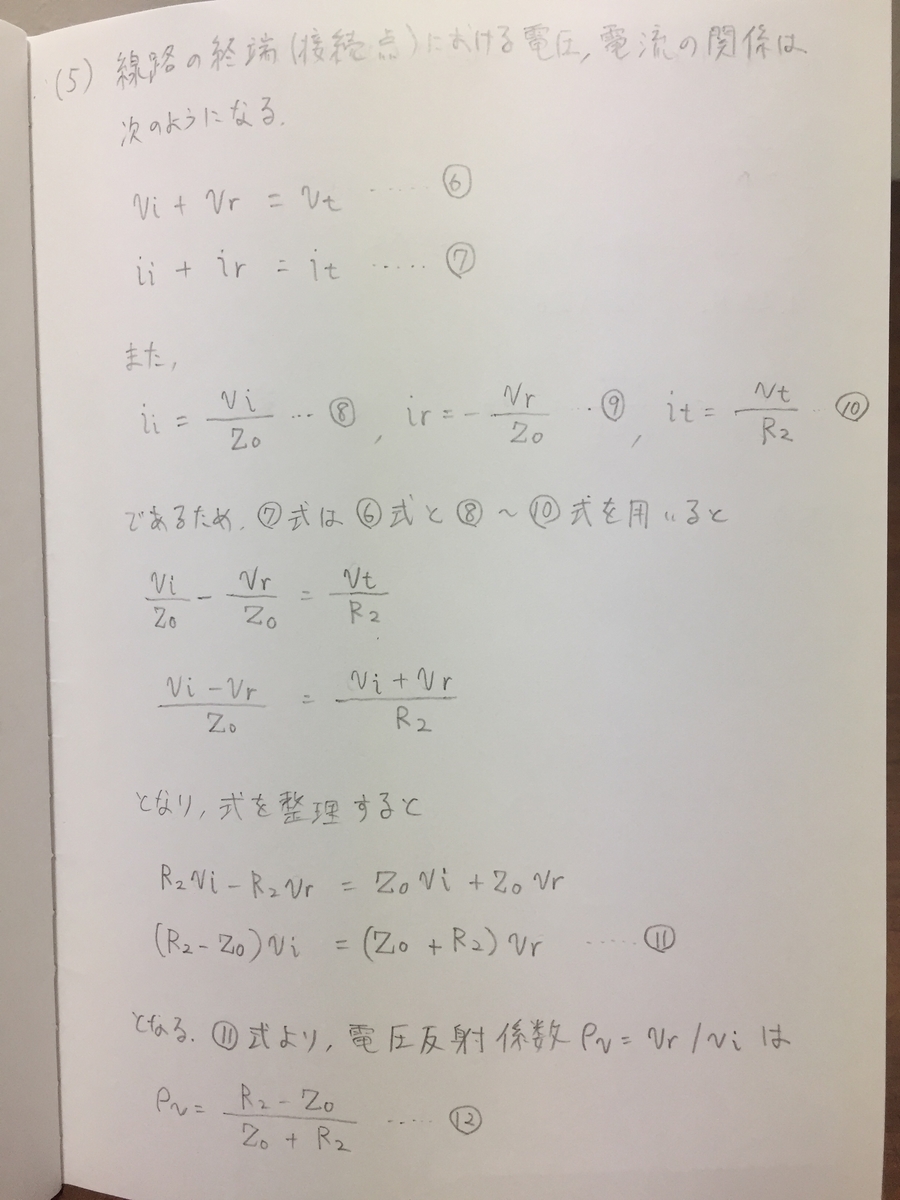 (5) 線路の終端(接続点)における電圧,電流の関係は
次のようになる.
vi + vr = vt ····· ⑥
ii + ir = it ····· ⑦
また,
ii = vi/Z0 ··· ⑧ , ir = - vr/Z0 ·· ⑨ , it = vt/R2 ·· ⑩
であるため. ⑦式は⑥式と⑧〜⑩式を用いると
vi/Z0 - vr/Z0 = vt/R2
(vi - vr)/Z0 = (vi + vr)/R2
となり,式を整理すると
R2vi - R2vr = Z0vi + Z0vr
(R2 - Z0)vi = (Z0 + R2)vr ····· ⑪
となる. ⑪式より, 電圧反射係数 ρv = vr/vi は
ρv = (R2 - Z0)/(Z0 + R2) ····· ⑫